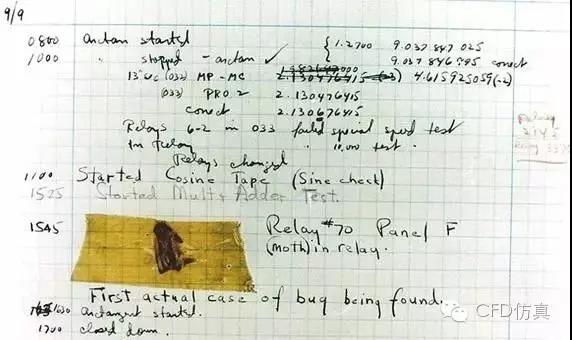 9/9
0800 arctan started { 1.2700 9.037 847 025
1000 " stopped - arctan ✓ 9.037 846 795 correct
13"uc (032) MP-MC 2.130476415 (-3) 4.615925059(-2)
(033) PRO 2 2.130476415
correct 2.130676415
Relays 6-2 in 033 failed special speed test
in Relay " 10,000 test .
Relays changed
Relay
2145
Relay 3370
1100 Started Cosine Tape (Sine check)
1525 Started Mult + Adder Test.
1545 Relay #70 Panel F
(moth) in relay.
First actual case of bug being found.
1630 arctangent started.
1700 closed down.
CFD仿真